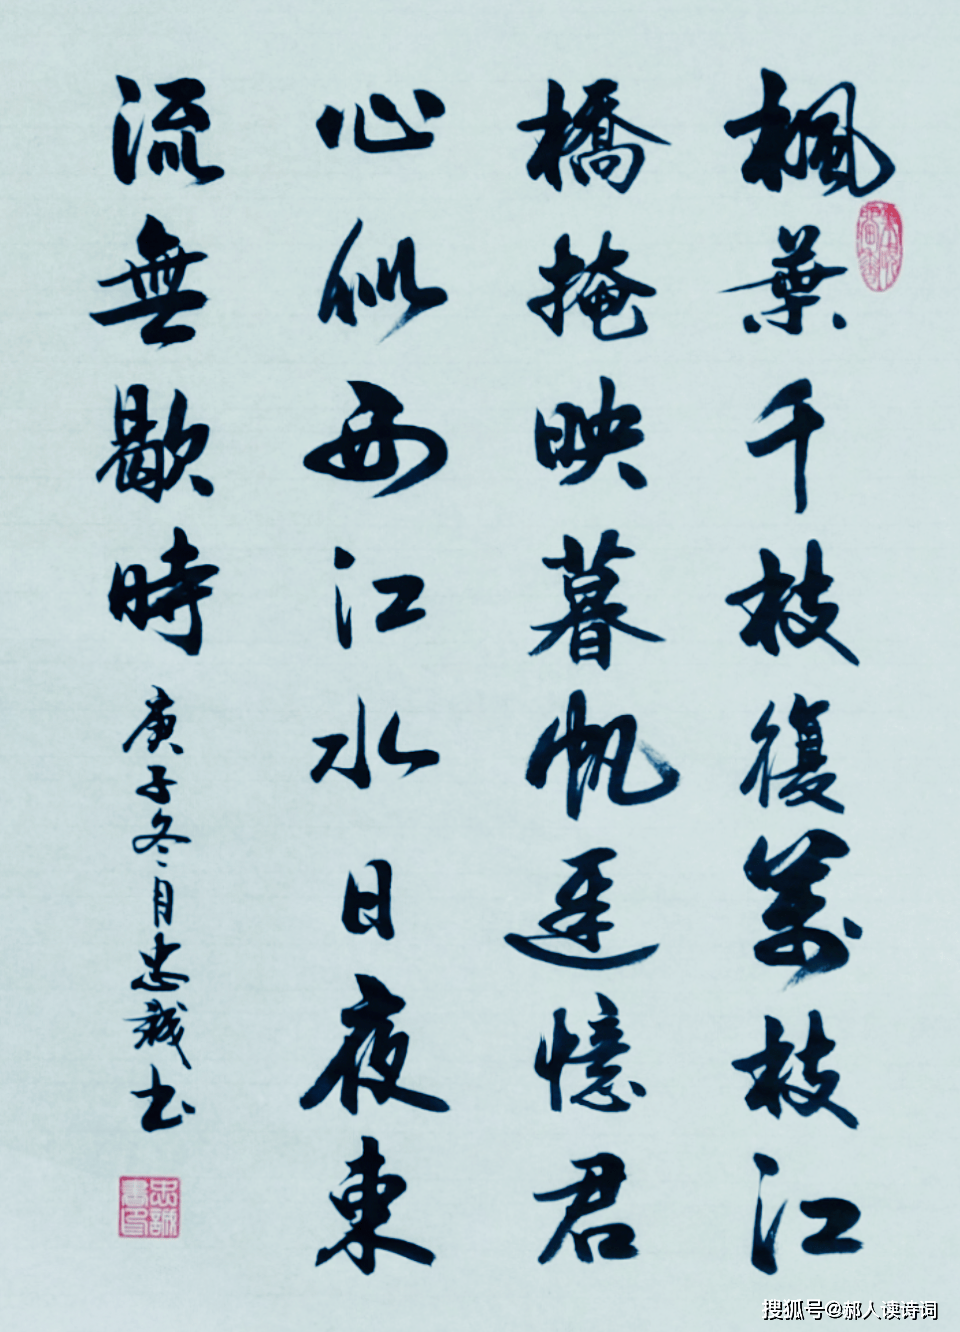 楓葉千枝復萬枝江
橋掩映暮帆遲憶君
心似西江水日夜東
流無歇時
庚子冬月忠誠书
忠誠書印
搜狐号@郝人读诗词